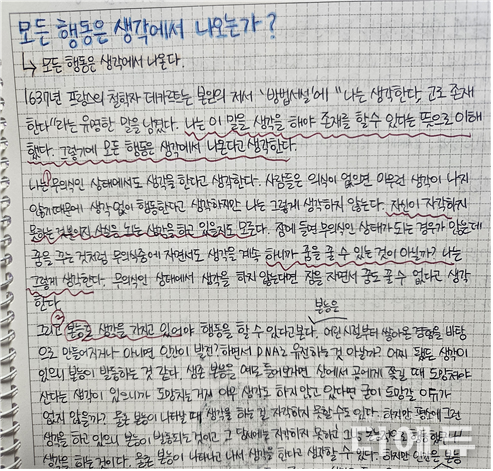 모든 행동은 생각에서 나오는가?
↳ 모든 행동은 생각에서 나온다.
1637년 프랑스의 철학자 데카르트는 본인의 저서 '방법서설'에 "나는 생각한다, 고로 존재
한다"라는 유명한 말을 남겼다. 나는 이 말을 생각을 해야 존재를 할 수 있다는 뜻으로 이해
했다. 그렇기에 모든 행동은 생각에서 나온다고 생각한다.
나는 ① 무의식인 상태에서도 생각을 한다고 생각한다. 사람들은 의식이 없으면 아무런 생각이 나지
않기 때문에 생각 없이 행동한다고 생각하지만 나는 그렇게 생각하지 않는다. 자신이 자각하지
못하는 것뿐이지 사실은 모두 생각을 하고 있을지도 모른다. 잠에 들면 무의식인 상태가 되는 경우가 있는데
꿈을 꾸는 것처럼 무의식중에 자면서도 생각을 계속 하니까 꿈을 꿀 수 있는 것이 아닐까? 나는
그렇게 생각한다. 무의식인 상태에서 생각을 하지 않는다면 잠을 자면서 꿈도 꿀 수 없다고 생각
한다.
본능은
그리고 ② 본능도 생각을 가지고 있어야 행동을 할 수 있다고 본다. 어린시절부터 쌓아온 경험을 바탕
으로 만들어지거나 아니면 인간이 발전하면서 DNA로 유전하는 것 아닐까? 어찌 됐든 생각이
있으니 본능이 발동하는 것 같다. 생존 본능을 예로 들어보자면 산에서 곰에게 쫓길 때 도망쳐야
산다는 생각이 있으니까 도망치는거지 아무 생각도 하지 않고 있다면 굳이 도망갈 이유가
없지 않을까? 물론 본능이 나타날 때 생각을 하는 걸 자각하지 못할 수도 있다. 하지만 평소에 그런
생각을 하고 있으니 본능이 발동되는 것이고 그 당시에는 자각하지 못하고
생각을 하는 것이다. 물론 본능이 나타나고 나서 생각을 한다고 생각할 수 있다. 하지만 본능은